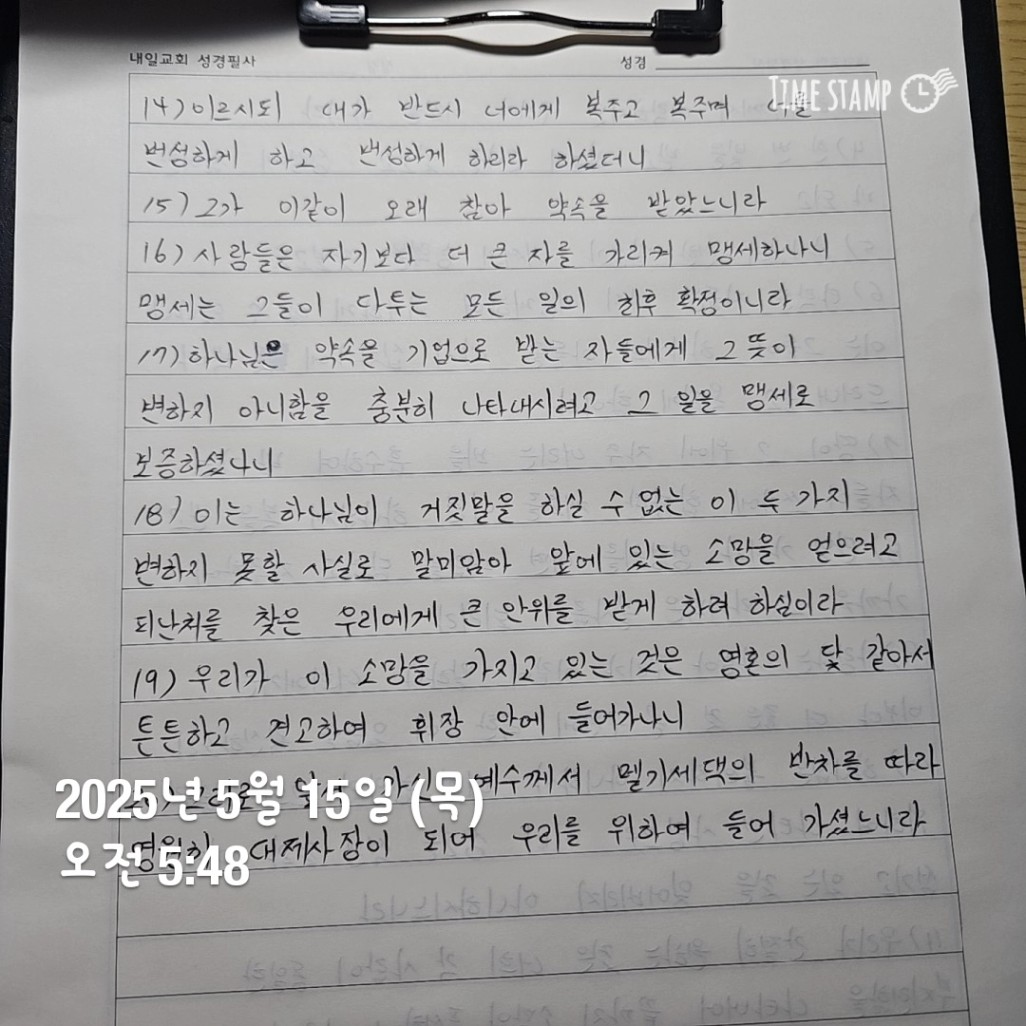 내일교회 성경필사 성경
TIME STAMP
14) 이르시되 내가 반드시 너에게 복주고 복주며 너를
번성하게 하고 번성하게 하리라 하셨더니
15) 그가 이같이 오래 참아 약속을 받았느니라
16) 사람들은 자기보다 더 큰 자를 가리켜 맹세하나니
맹세는 그들이 다투는 모든 일의 최후 확정이니라
17) 하나님은 약속을 기업으로 받는 자들에게 그 뜻이
변하지 아니함을 충분히 나타내시려고 그 일을 맹세로
보증하셨나니
18) 이는 하나님이 거짓말을 하실 수 없는 이 두 가지
변하지 못할 사실로 말미암아 앞에 있는 소망을 얻으려고
피난처를 찾은 우리에게 큰 안위를 받게 하려 하심이라
19) 우리가 이 소망을 가지고 있는 것은 영혼의 닻 같아서
튼튼하고 견고하여 휘장 안에 들어가나니
가신 예수께서 멜기세덱의 반차를 따라
2025년 5월 15일 (목)
영원히 대제사장이 되어 우리를 위하여 들어 가셨느니라
오전 5:48